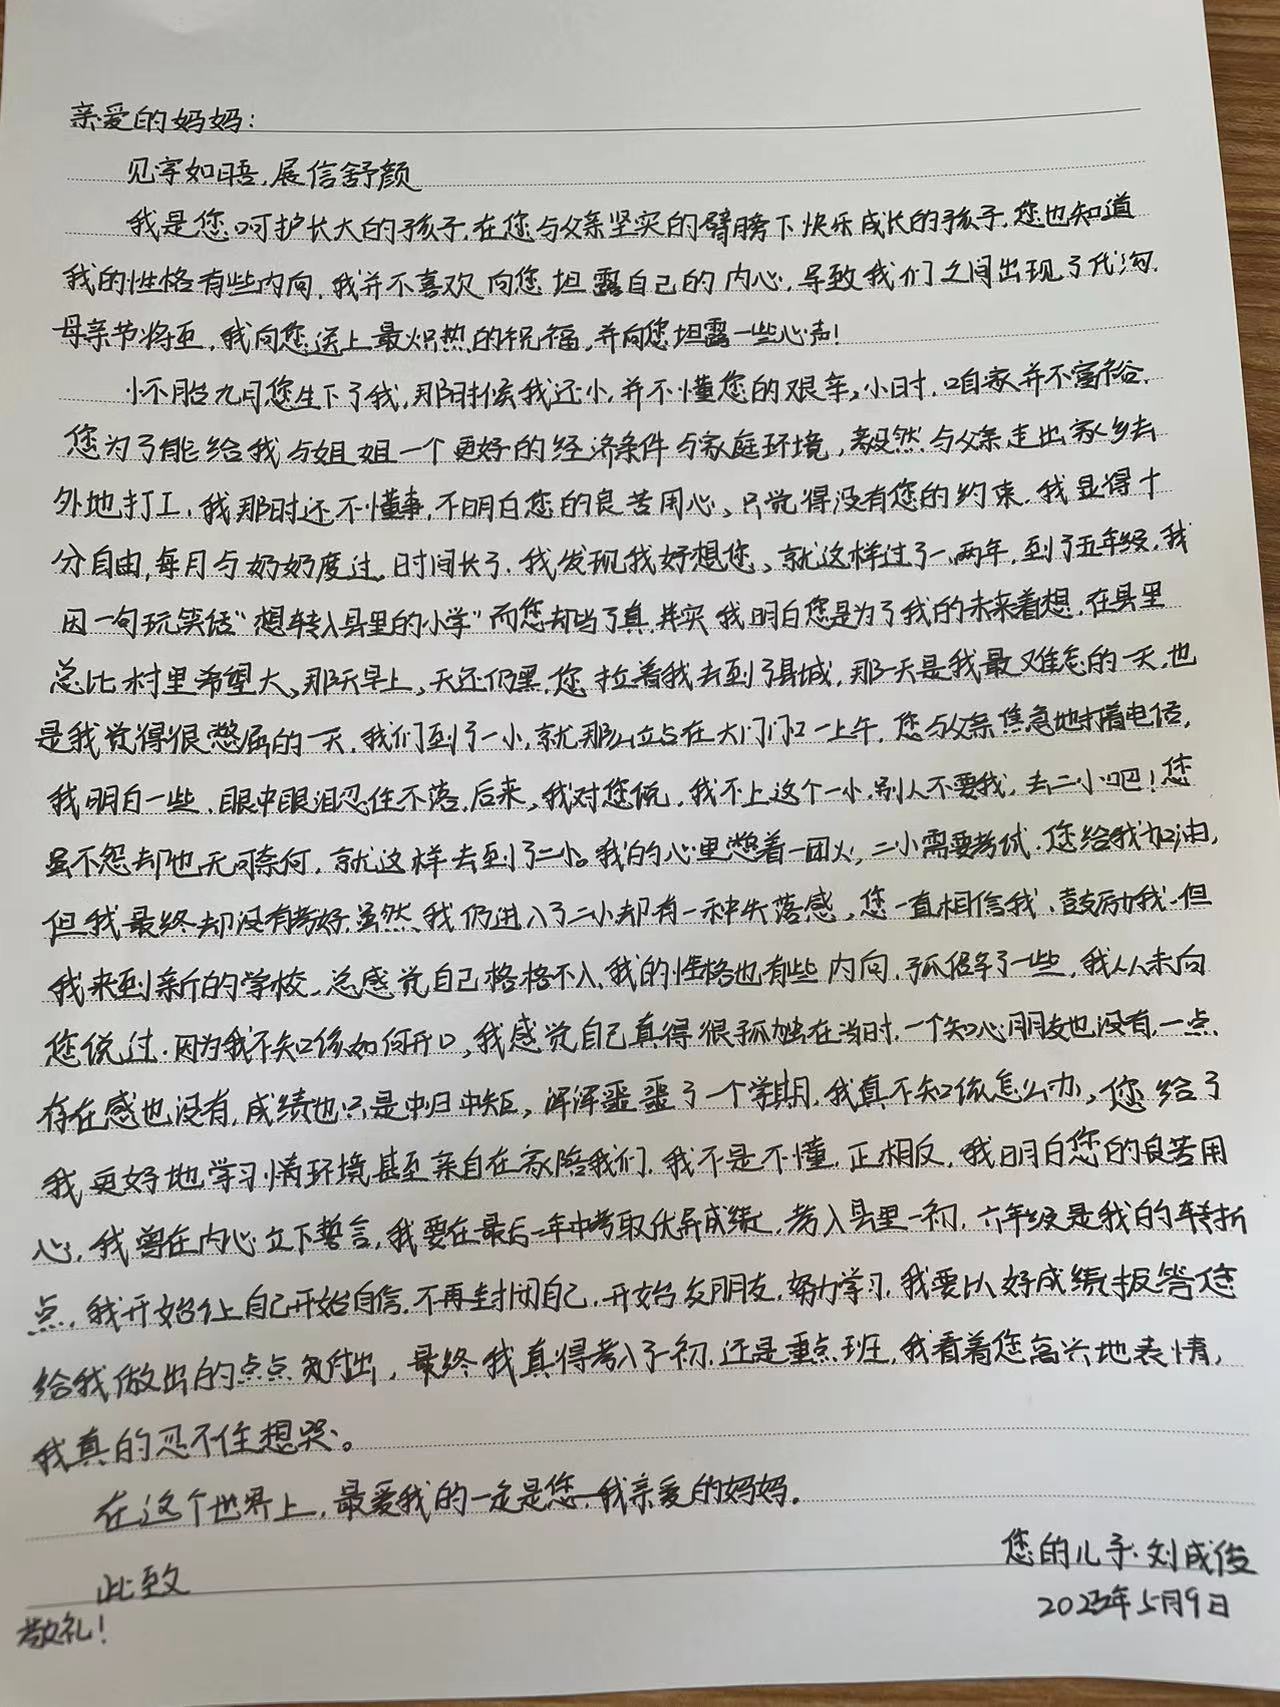 亲爱的妈妈:
见字如晤,展信舒颜
我是您呵护长大的孩子,在您与父亲坚实的臂膀下快乐成长的孩子,您也知道
我的性格有些内向,我并不喜欢向您坦露自己的内心,导致我们之间出现了代沟.
母亲节将至,我向您送上最炽热的祝福,并向您坦露一些心声!
怀胎九月您生下了我,那时候我还小,并不懂您的艰辛。小时,咱家并不富裕.
您为了能给我与姐姐一个更好的经济条件与家庭环境,毅然与父亲走出家乡去
外地打工,我那时还不懂事,不明白您的良苦用心、只觉得没有您的约束,我显得十
分自由,每月与奶奶度过,时间长了,我发现我好想您、就这样过了一、两年,到了五年级,我
因一句玩笑话"想转入县里的小学"而您却当了真,其实我明白您是为了我的未来着想,在县里
总比村里希望大、那天早上,天还仍黑,您拉着我去到了县城,那一天是我最难忘的一天,也
是我觉得很憋屈的一天,我们到了一小,就那么站在大门门口一上午,您与父亲焦急地打着电话,
我明白一些,眼中眼泪忍住不落,后来,我对您说,我不上这个一小,别人不要我,去二小吧!您
虽不怨却也无可奈何,就这样去到了二小。我的心里憋着一团火,二小需要考试,您给我加油,
但我最终却没有考好,虽然我仍进入了二小却有一种失落感、您一直相信我、鼓励我,但
我来到新的学校,总感觉自己格格不入,我的性格也有些内向,孤僻了一些,我从未向
您说过,因为我不知该如何开口,我感觉自己真得很孤独在当时,一个知心朋友也没有,一点
存在感也没有,成绩也只是中归中矩,浑浑噩噩了一个学期,我真不知该怎么办,您给了
我更好地学习情环境,甚至亲自在家陪我们,我不是不懂,正相反,我明白您的良苦用
心,我曾在内心立下誓言,我要在最后一年中考取优异成绩,考入县里一初,六年级是我的转折
点,我开始让自己开始自信,不再封闭自己,开始交朋友,努力学习,我要以好成绩报答您
给我做出的点点付出,最终我真得考入了一初,还是重点班,我看着您高兴地表情,
我真的忍不住想哭。
在这个世界上,最爱我的一定是您,我亲爱的妈妈.
您的儿子:刘成俊
此致
2023年5月9日
敬礼!